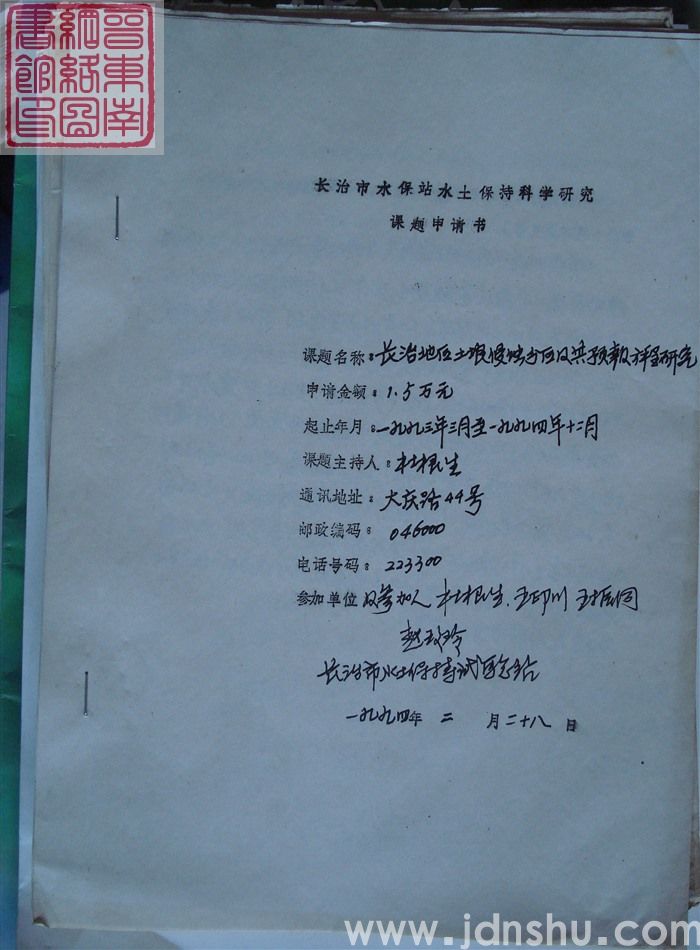 晋东南
網絡圖
書館印
长治市水保站水土保持科学研究
课题申请书
课题名称：长治地区土壤侵蚀分区及其预报方程研究
申请金额：1.5万元
起止年月：一九九三年三月至一九九四年十二月
课题主持人：杜根生
通讯地址：大庆路44号
邮政编码：046000
电话号码：223300
参加单位及参加人 杜根生、王印川 王
赵玲
长治市水土保持试验站
一九九四年 二 月二十八 日
www.jdnshu.com